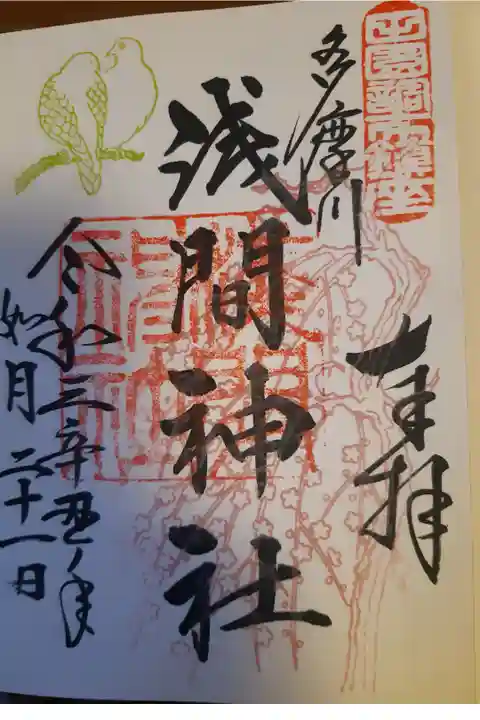 奉拝
多摩川
浅間神社
令和三辛丑年
如月二十一日